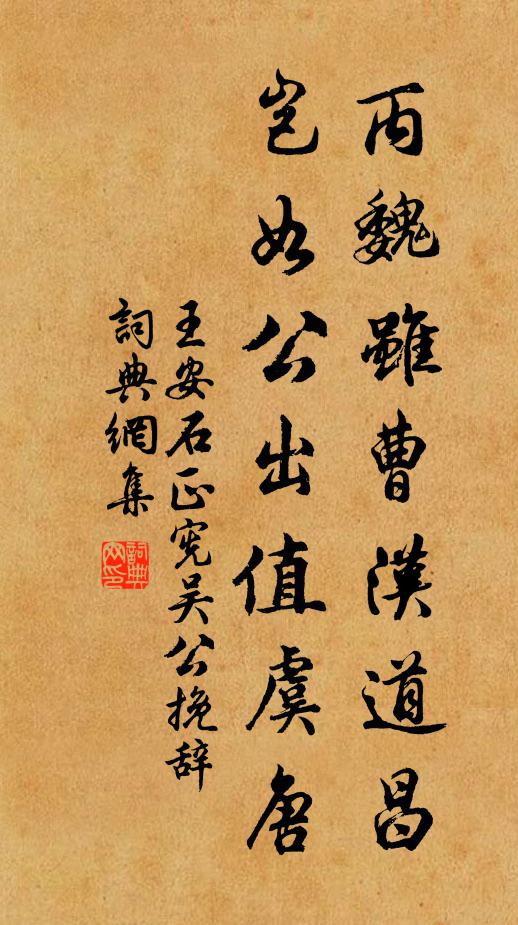 丙魏雖曹漢道昌
豈如公出值虞唐
王安石正宪吴公挽辞
詞典網集
詞典
网印